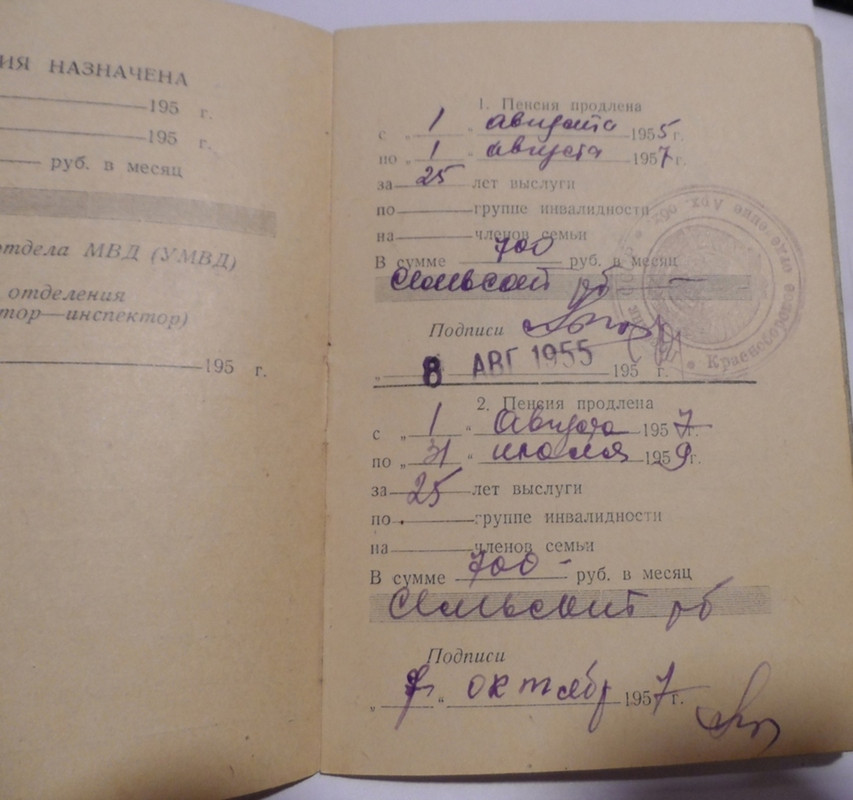 ИЯ НАЗНАЧЕНА
195 г.
195 г.
руб. в месяц
отдела МВД (УМВД)
отделения
тор—инспектор)
195 г.
1. Пенсия продлена
с „ 1 “ августа 1955 г.
по „ 1 “ августа 1957 г.
за 25 лет выслуги
по группе инвалидности
на членов семьи
В сумме 700 руб. в месяц
Семьсот рб
Подписи
„ 8 АВГ 1955 195 г.
2. Пенсия продлена
с „ 1 “ августа 1957 г.
по „ 31 “ июля 1959 г.
за 25 лет выслуги
по группе инвалидности
на членов семьи
В сумме 700 - руб. в месяц
Семьсот рб
Подписи
„ “ октябр 1957 г.
Красноборское отделение Арх. обл.